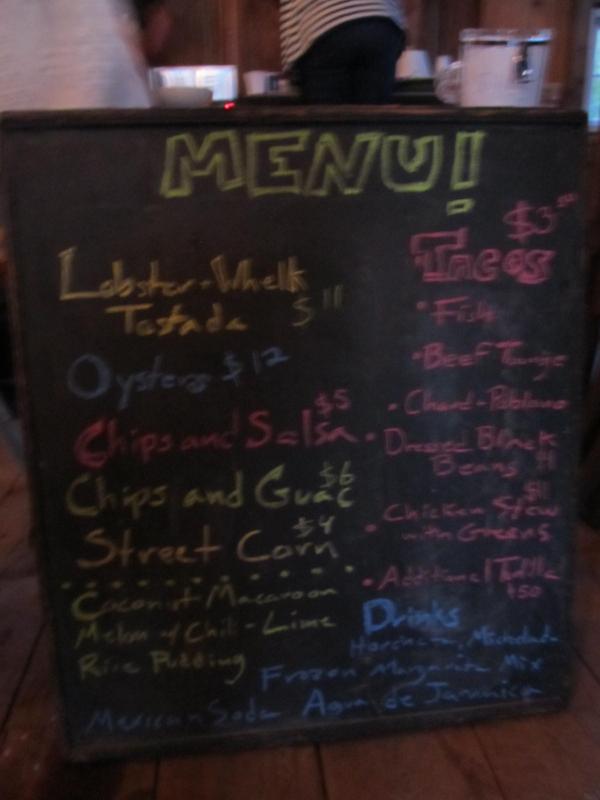 MENU!
Lobster-Whelk
Tostada $11
Oysters $12
Chips and Salsa $5
Chips and Guac $6
Street Corn $4
Coconut Macaroon
Melon w/ Chili-Lime
Rice Pudding
$3
Tacos
• Fish
• Beef Tongue
• Chard-Poblano
• Dressed Black
Beans
• Chicken Stew
with Greens
• Additional Tortilla
Drinks
Horchata, Michelada
Frozen Margarita Mix
Mexican Soda Agua de Jamaica